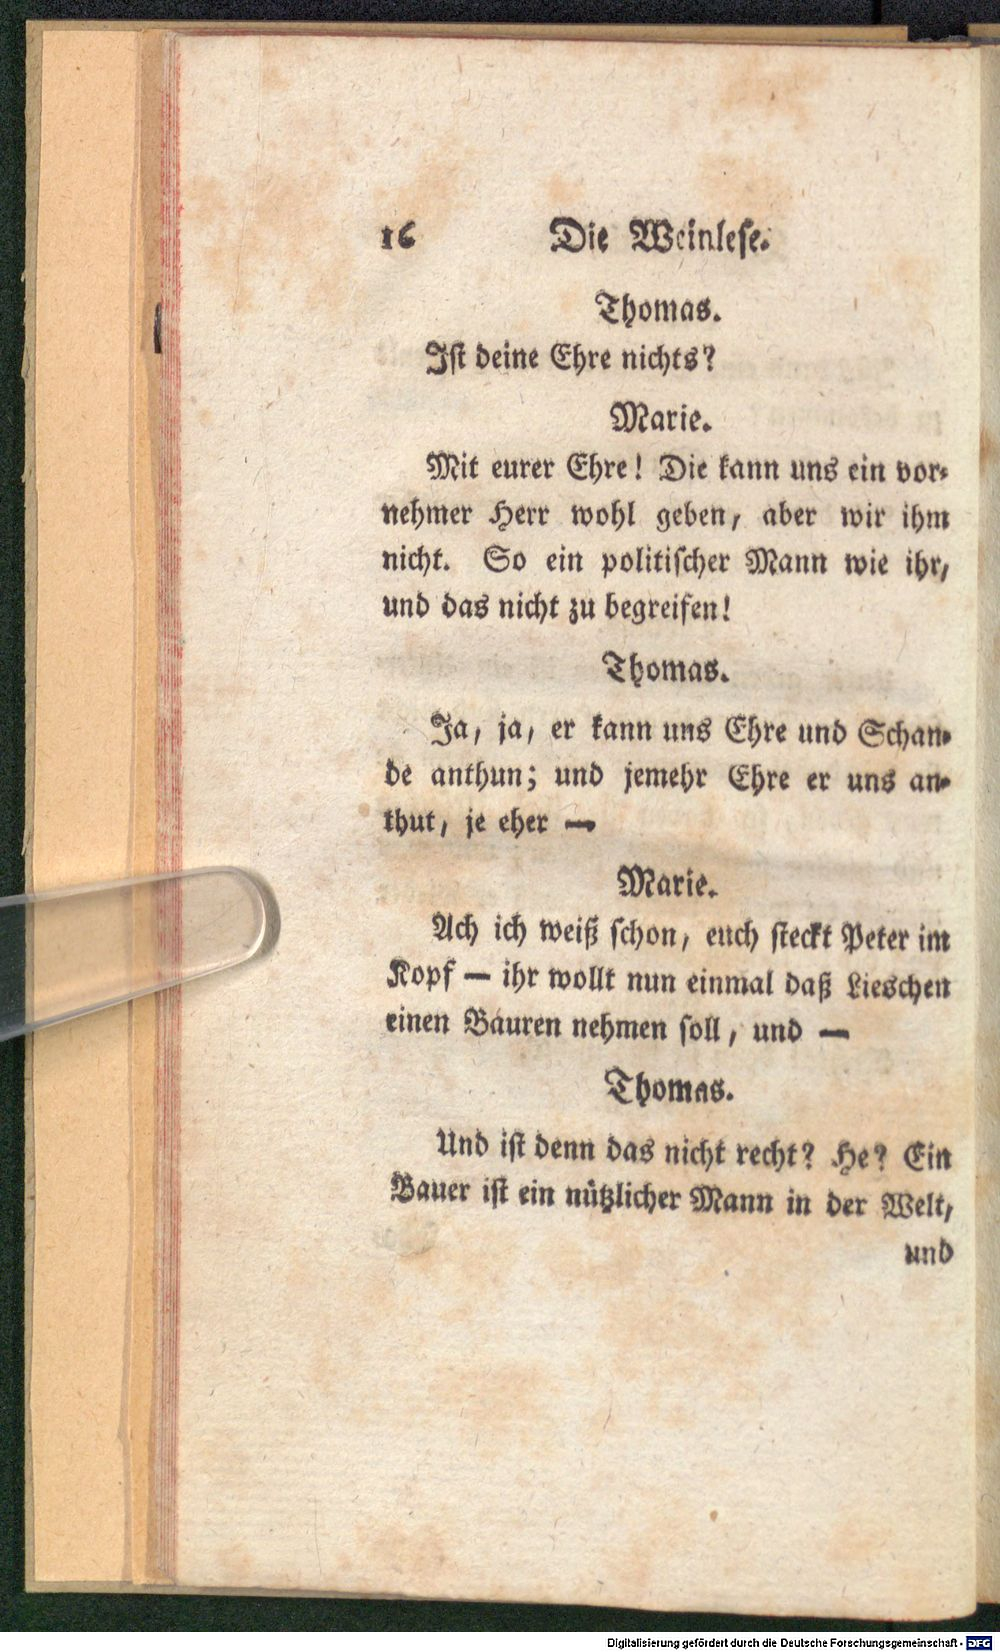 16 Die Weinlese.
Thomas.
Ist deine Ehre nichts?
Marie.
Mit eurer Ehre! Die kann uns ein vor-
nehmer Herr wohl geben, aber wir ihm
nicht. So ein politischer Mann wie ihr,
und das nicht zu begreifen!
Thomas.
Ja, ja, er kann uns Ehre und Schan-
de anthun; und jemehr Ehre er uns an-
thut, je eher —
Marie.
Ach ich weiß schon, euch steckt Peter im
Kopf — ihr wollt nun einmal daß Lieschen
einen Bauren nehmen soll, und —
Thomas.
Und ist denn das nicht recht? He? Ein
Bauer ist ein nützlicher Mann in der Welt,
und
Digitalisierung gefördert durch die Deutsche Forschungsgemeinschaft - DFG